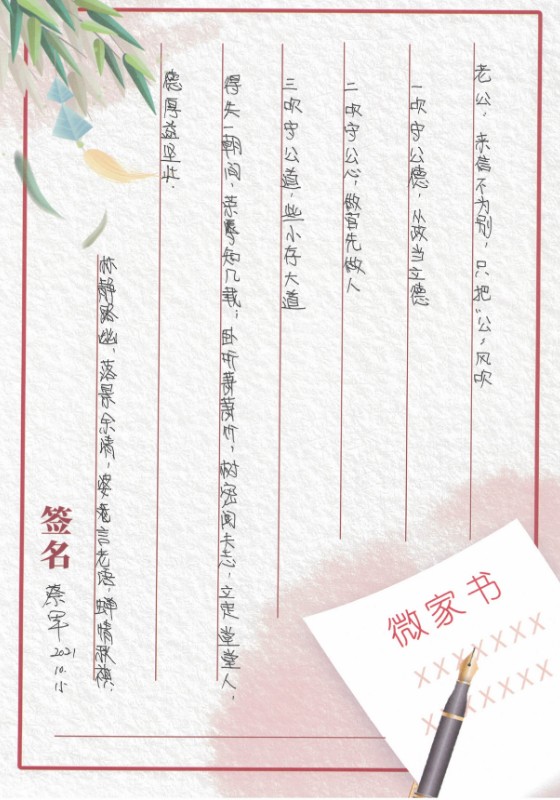 老公,亲信不为别,只把"公"风吹
一吹守公德,从政当立德
二吹守公心,做官先做人
三吹守公道,些小存大道
得失一朝间,荣辱知几载;卧听萧萧竹,树密闻夫志,立定堂堂人,
德厚益坚壮.
林静路幽,落景余情,婆 言老语,蝉情秋
签名
蔡军
2021
10.
微家书
XXXXXXX
XXXXXXX